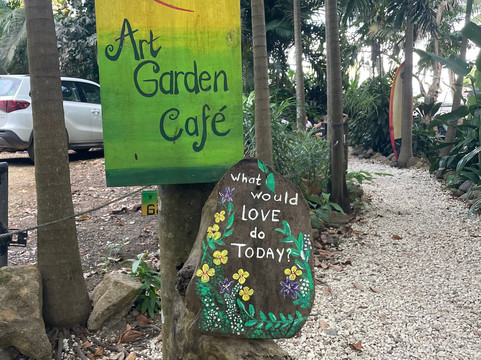 Art
Garden
Café
What
would
LOVE
do
TODAY?